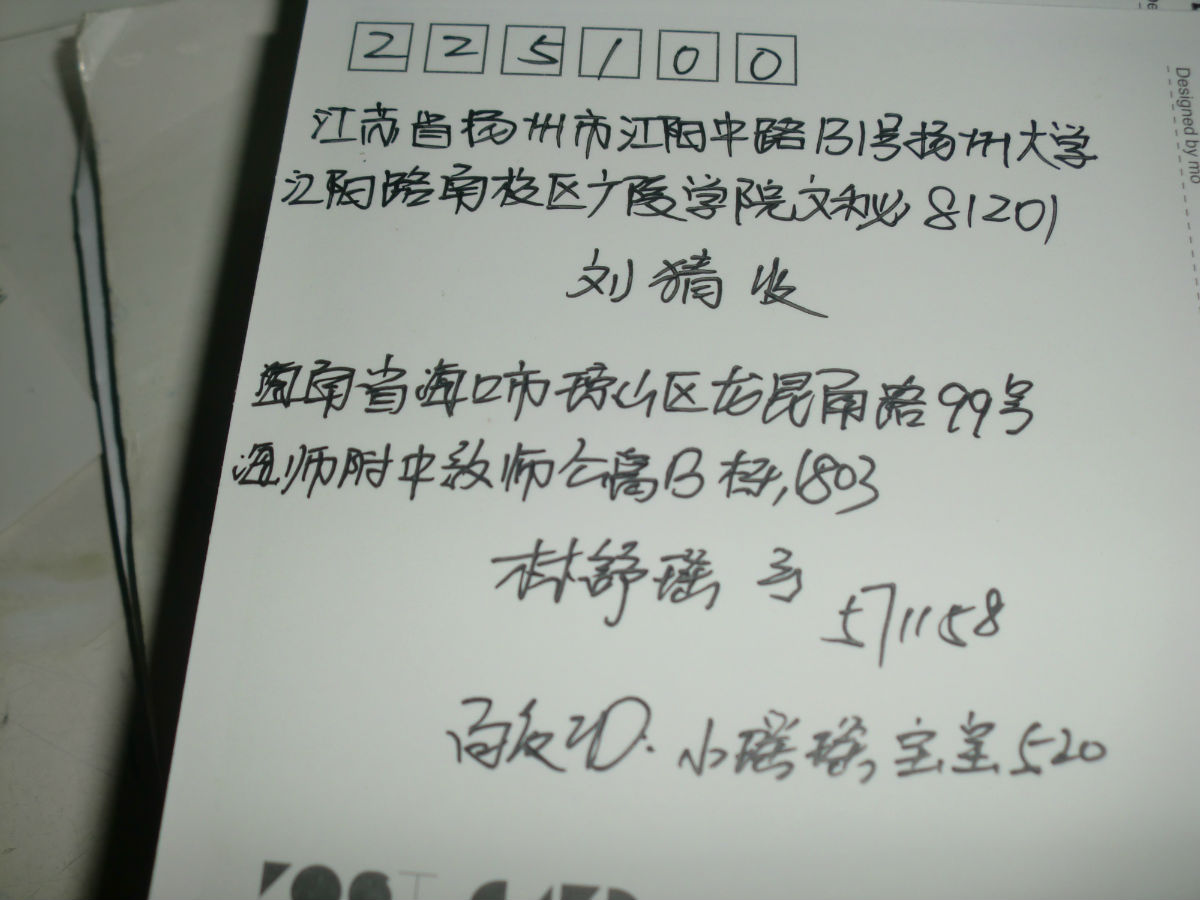 225100
江苏省扬州市江阳中路131号扬州大学
江阳路南校区广陵学院文秘81201
刘猜 收
海南省海口市琼山区龙昆南路99号
海师附中教师公寓B栋,1803
林舒瑶 寄
571158
百度ID:小瑶瑶宝宝520
POST CARD
Designed by mio